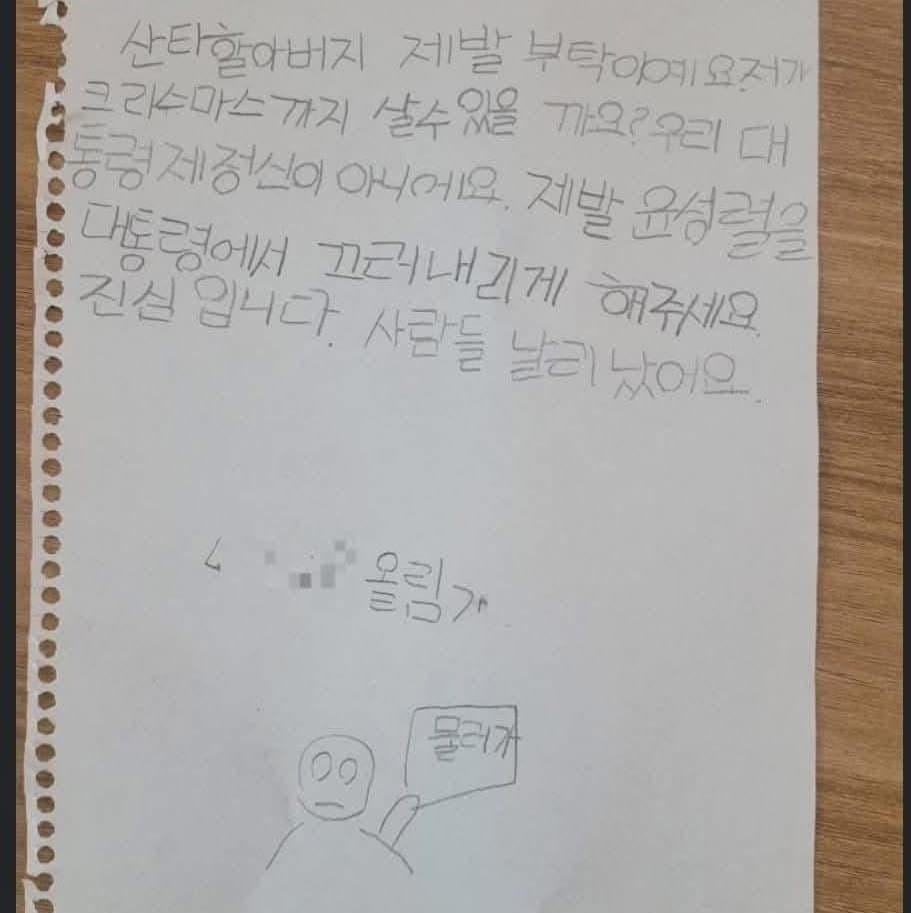 산타할아버지 제발 부탁이예요.저가
크리수마스까지 살수있을 까요?우리 대
통령제정신이 아니에요. 제발 윤성렬을
대통령에서 끄러내리게 해주세요.
진심 입니다. 사람들 날리 났어요.
올림
물러가